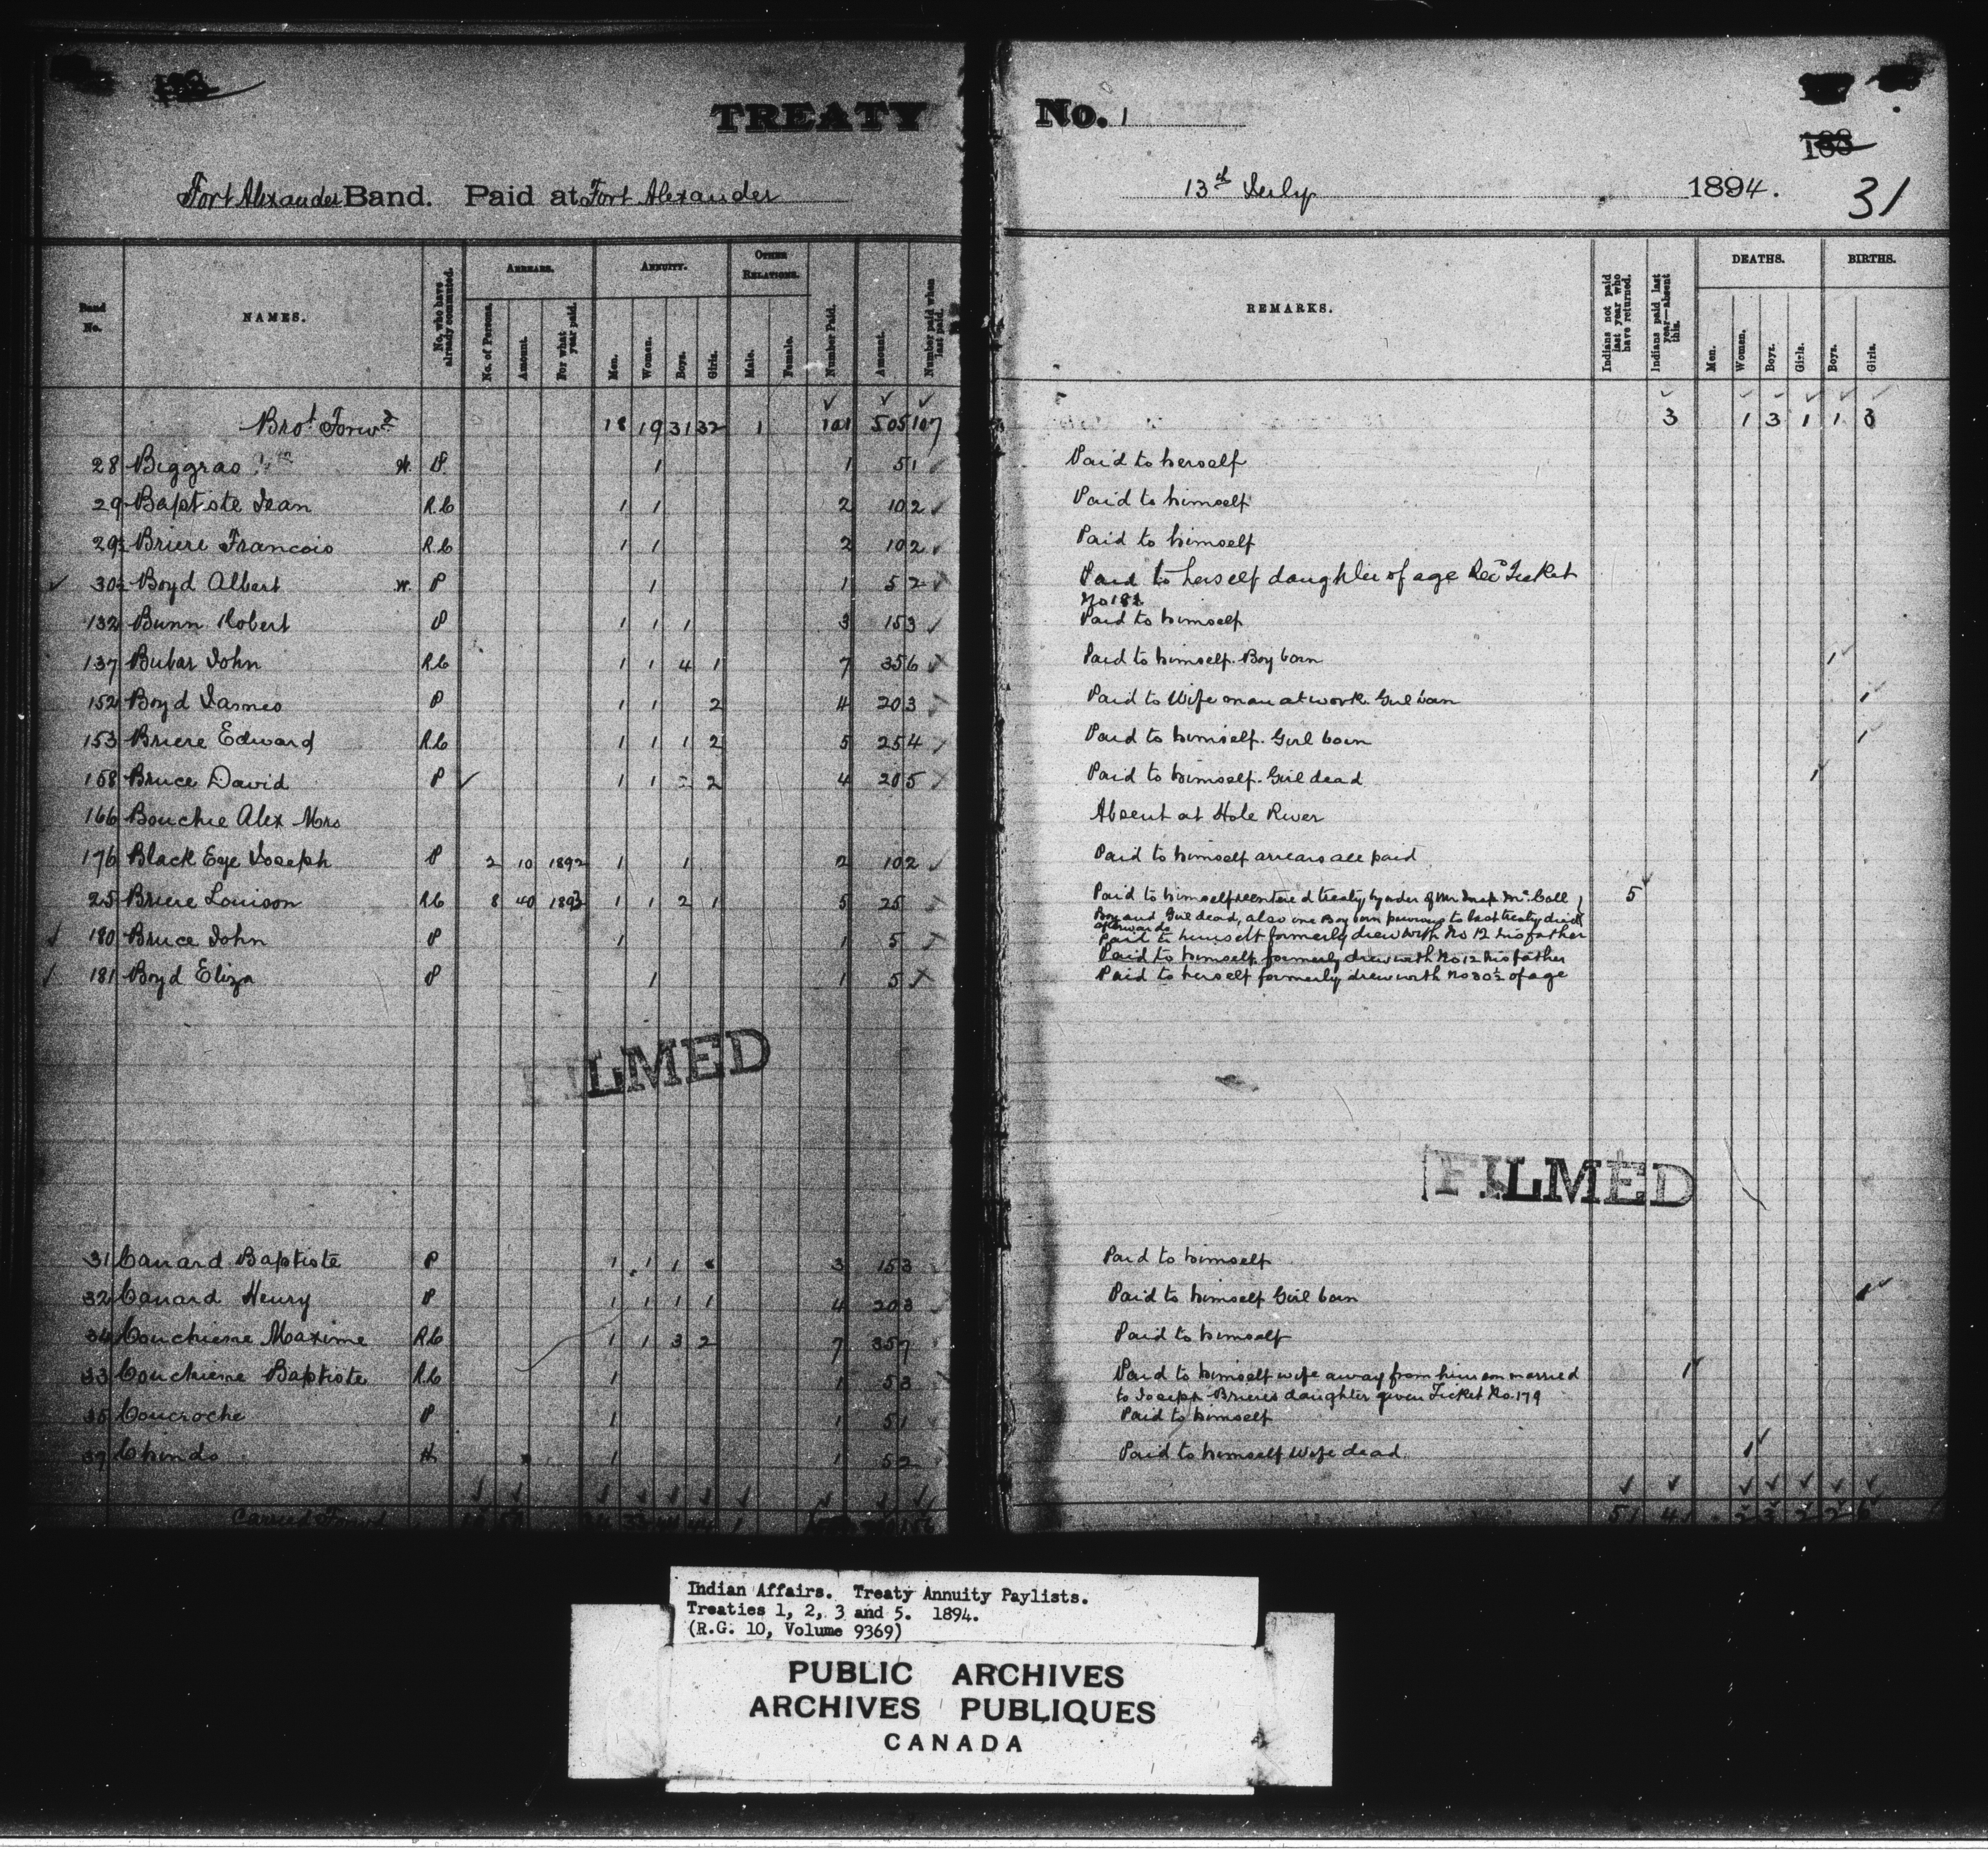 TREATY No. 1
188
31
Fort Alexander Band. Paid at Fort Alexander 13th July 1894.
Band No. NAMES. No. who have already commuted. ARREARS. No. of Persons. Amount. For what year paid. ANNUITY. Men. Women. Boys. Girls. OTHER RELATIONS. Male. Female. Number Paid. Amount. Number paid when last paid. REMARKS. Indians not paid last year who have returned. Indians paid last year—absent this. DEATHS. Men. Women. Boys. Girls. BIRTHS. Boys. Girls.
Brot Forwd 18 19 31 32 1 101 505 107 3 1 3 1 1 3
28 Biggras W. P 1 1 5 1 Paid to herself
29 Baptiste Jean R.C 1 1 2 10 2 Paid to himself
29½ Briere Francois R.C 1 1 2 10 2 Paid to himself
30½ Boyd Albert W. P 1 1 5 2 Paid to herself daughter of age Recd Ticket
No 181
132 Bunn Robert P 1 1 1 3 15 3 Paid to himself
137 Bubar John R.C 1 1 4 1 7 35 6 Paid to himself. Boy born 1
152 Boyd James P 1 1 2 4 20 3 Paid to Wife man at work. Girl born 1
153 Briere Edward R.C 1 1 1 2 5 25 4 Paid to himself. Girl born 1
158 Bruce David P 1 1 2 4 20 5 Paid to himself. Girl dead 1
166 Bouchie Alex Mrs Absent at Hole River
176 Black Eye Joseph P 2 10 1892 1 1 2 10 2 Paid to himself arrears all paid
25 Briere Louison R.C 8 40 1893 1 1 2 1 5 25 Paid to himself reentered treaty by order of Mr Insp. McColl 5
Boy and Girl dead, also one Boy born previous to last treaty died
afterwards
180 Bruce John P 1 1 5 Paid to himself formerly drew with No 12 his father
Paid to himself formerly drew with No 12 his father
181 Boyd Eliza P 1 1 5 Paid to herself formerly drew with No 30½ of age
FILMED
FILMED
31 Canard Baptiste P 1 1 1 3 15 3 Paid to himself
32 Canard Henry P 1 1 1 1 4 20 3 Paid to himself Girl born 1
34 Couchiene Maxime R.C 1 1 3 2 7 35 7 Paid to himself
33 Couchiene Baptiste R.C 1 1 5 3 Paid to himself wife away from him son married 1
to Joseph Brieres daughter given Ticket No. 179
35 Coucroche P 1 1 5 1 Paid to himself
37 Chindo H 1 1 5 2 Paid to himself Wife dead 1
Carried Forwd
Indian Affairs. Treaty Annuity Paylists.
Treaties 1, 2, 3 and 5. 1894.
(R.G. 10, Volume 9369)
PUBLIC ARCHIVES
ARCHIVES PUBLIQUES
CANADA